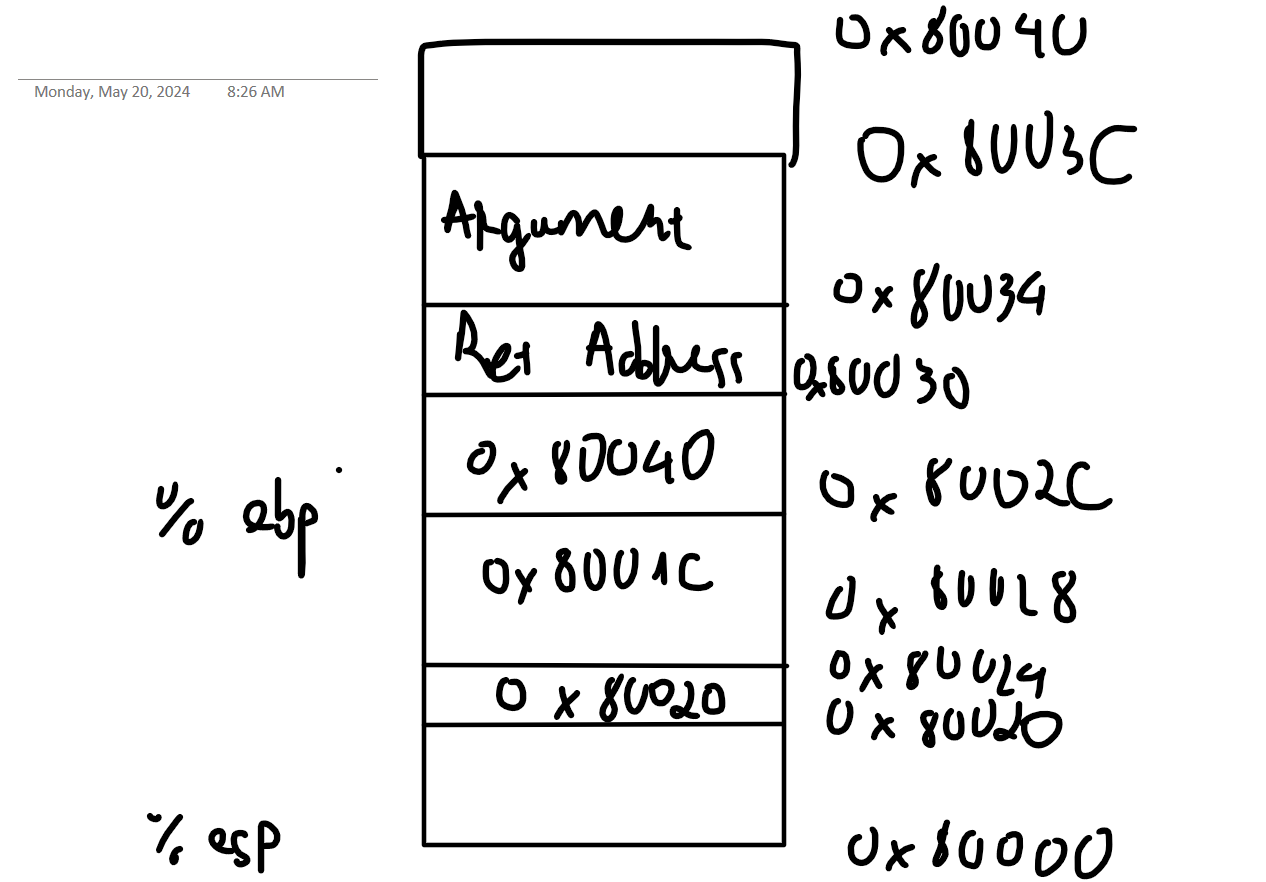 0x80040
Monday, May 20, 2024 8:26 AM
0x8003C
Argument
0x80034
Ret Address 0x80030
0x80040 0x8002C
% ebp
0x8001C 0x80028
0x80024
0x80020 0x80020
% esp 0x80000